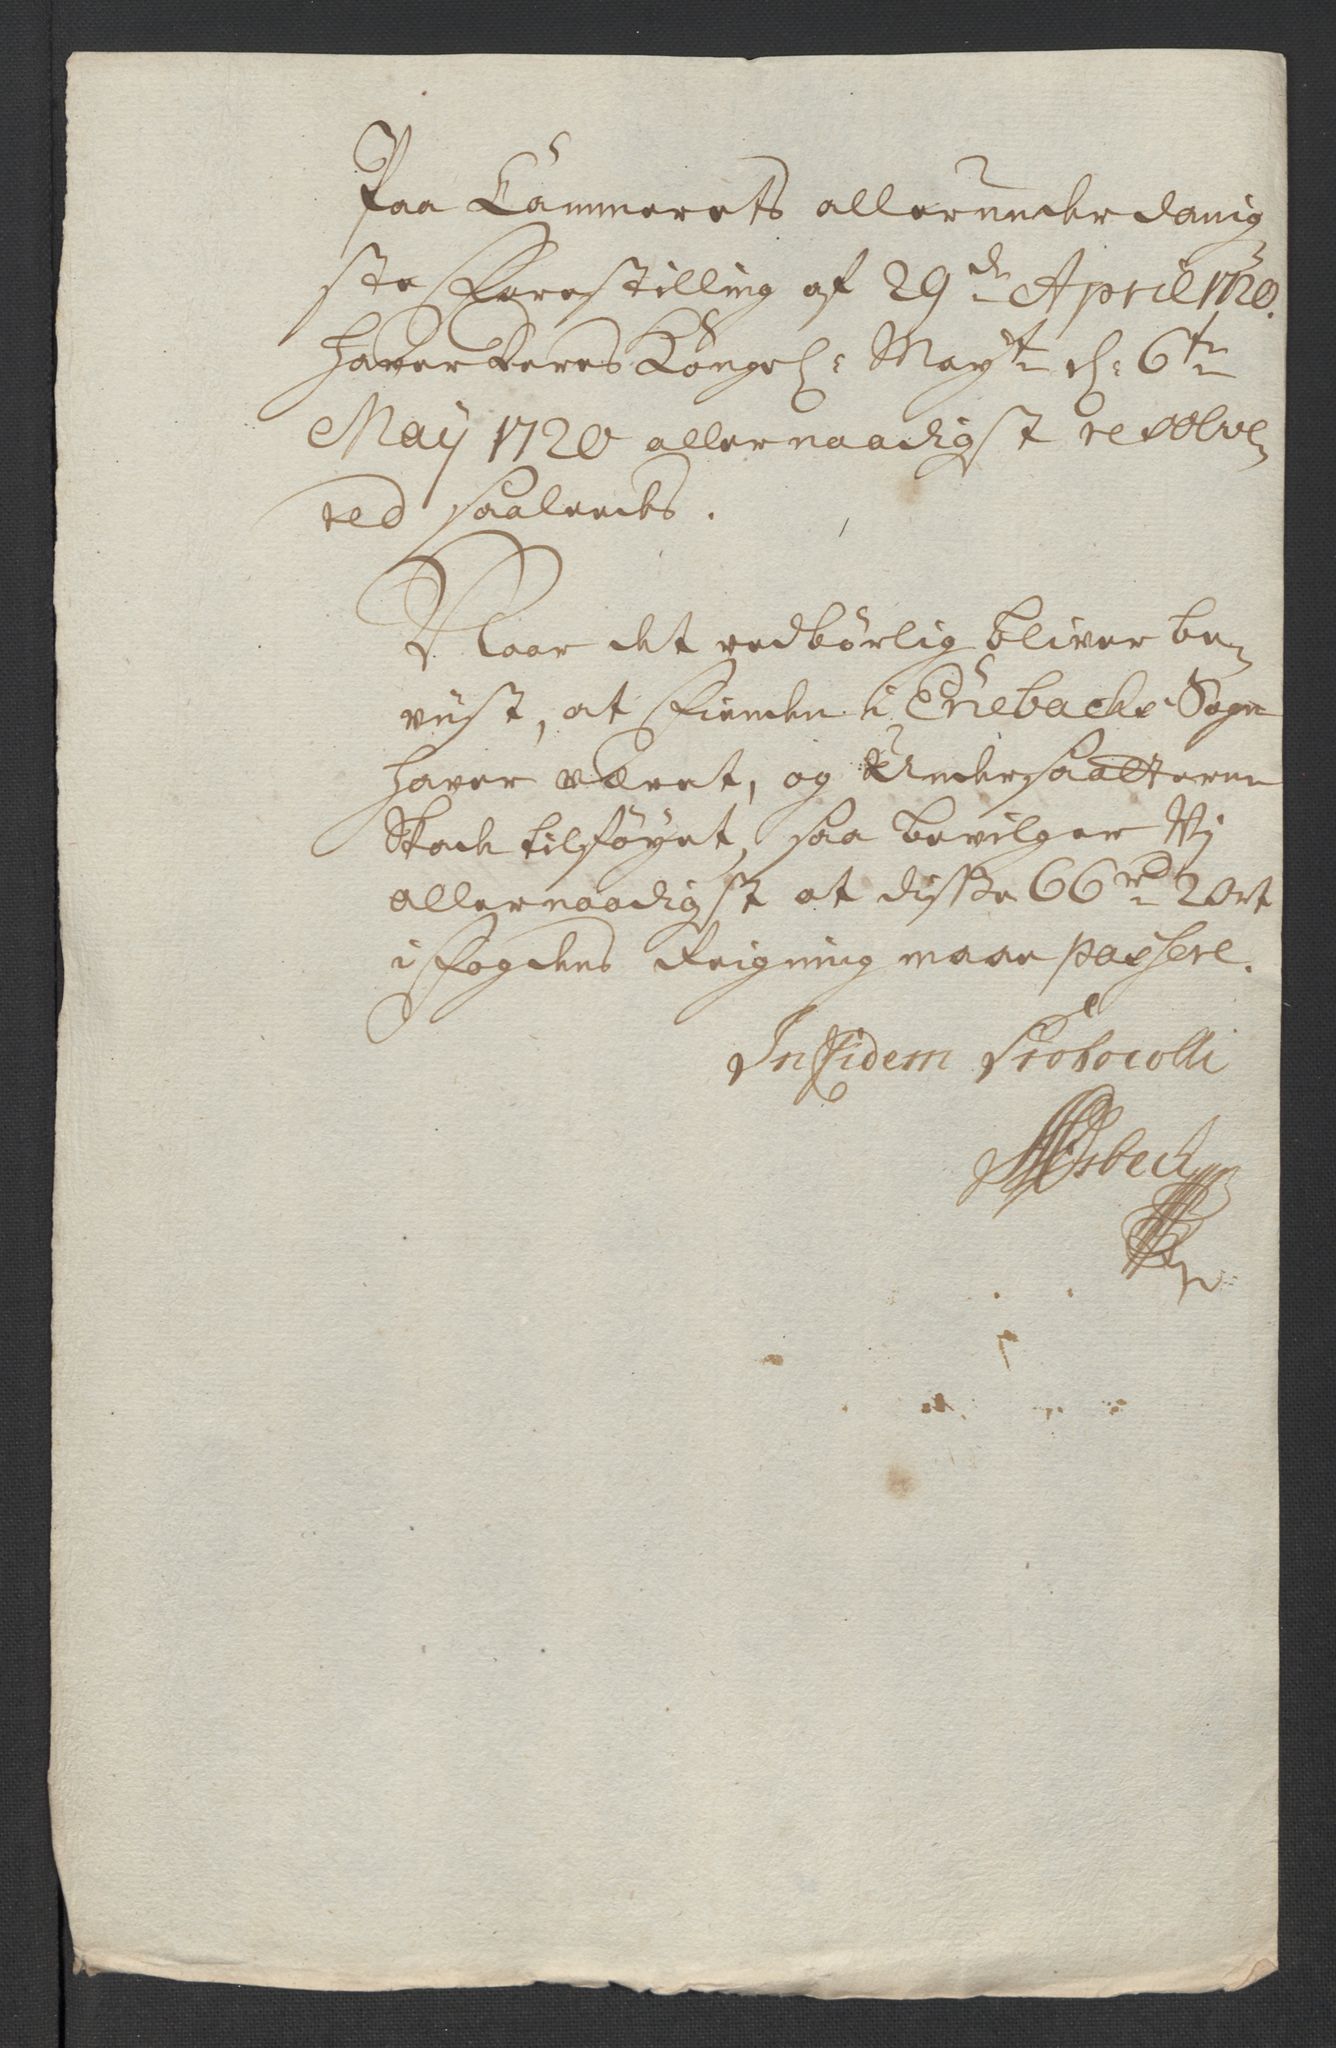 Paa Cammerets allerunderdanig
ste Forestilling af 29de April 1720.
haver Deres Kongel: Mayt d: 6te
Maij 1720 allernaadigst resolve
red saaledes.
Naar det vedbörlig bliver be
viist, at Fienden i Enebachs Sogn
haver været, og Undersaatterne
Skade tilföyet, saa bevilger Vj
allernaadigst at disse 66 rd 2 ort
i Fogdens Reigning maae passere.
In Fidem Protocolli